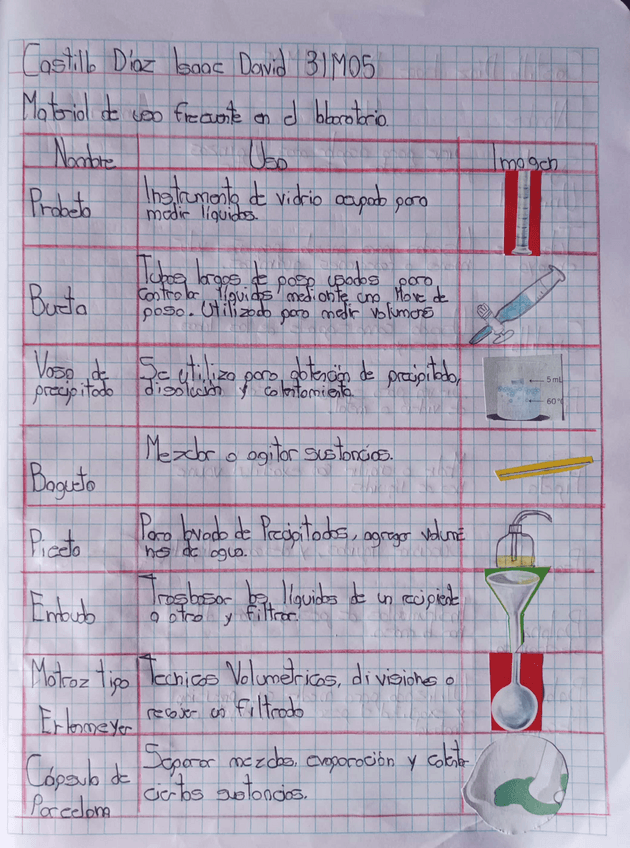 Castillo Díaz Isaac David 31M05
Material de uso frecuente en el laboratorio.
Nombre Uso Imagen
Probeta
Instrumento de vidrio ocupado para
medir líquidos.
Bureta
Tubos largos de paso usados para
controlar líquidos mediante una llave de
paso. Utilizado para medir volumenes
Vaso de
precipitado
Se utiliza para obtención de precipitado,
disolución y calentamiento.
5 mL
60°
Bagueta
Mezclar o agitar sustancias.
Piceta
Para lavado de Precipitados, agregar volume
nes de agua.
Embudo
Trasbasar los líquidos de un recipiente
a otro y filtrar.
Matraz tipo
Erlenmeyer
Tecnicas Volumetricas, divisiones o
recojer un filtrado
Cápsula de
Porcelana
Separar mezclas, evaporación y calentar
ciertas sustancias.